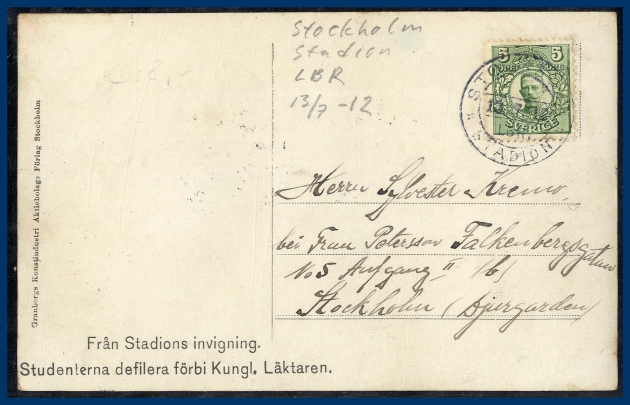 Stockholm
Stadion
LBR
13/7 -12
5 5
SVERIGE
STADION
Herrn Sylvester Kremo,
bei Frau Petersson Falkenbergsgatan
No 5 Aufgang II (b)
Stockholm (Djurgarden)
Granbergs Konstindustri Aktiebolags Förlag Stockholm
Från Stadions invigning.
Studenterna defilera förbi Kungl. Läktaren.